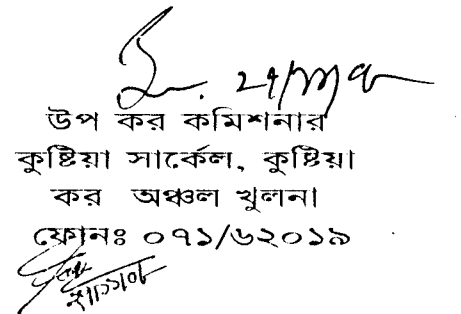 উপ কর কমিশনার
কুষ্টিয়া সার্কেল, কুষ্টিয়া
কর অঞ্চল খুলনা
ফোনঃ ০৭১/৬২০১৯